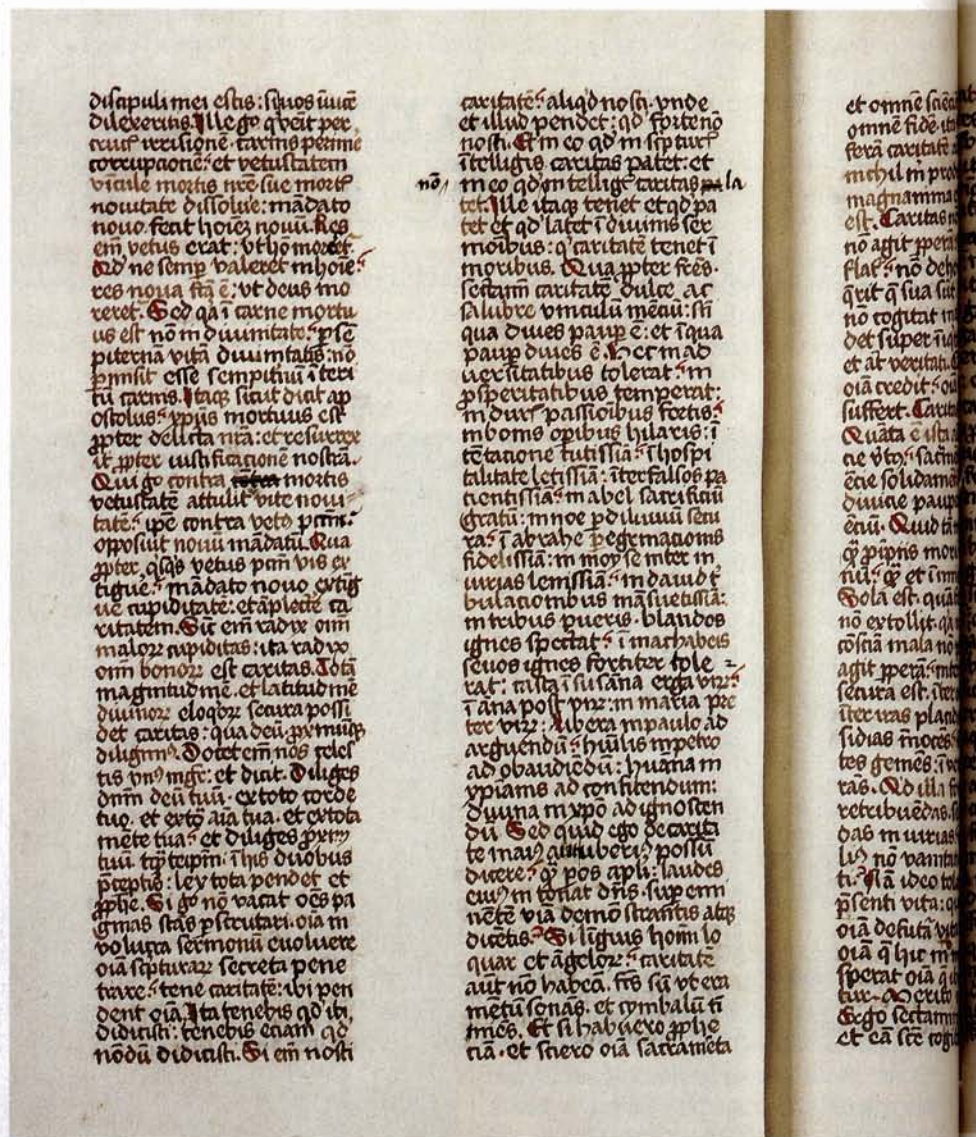 discipuli mei estis: si vos invicē
dilexeritis. Ille go q̄ venit per
crucis irrisionē. carnis perimē
corrupcionē: et vetustatem
vīcule mortis nr̄e sue mortꝭ
novitate dissolve: mādato
novo fecit hoīeꝫ novū. Res
em̄ vetus erat: vt hō moreret.
Qd' ne semꝑ valeret in hoīe:
res nova fc̄a ē: vt deus mo
reret. Sed q̄a ī carne mortu
us est nō in divinitate: ꝑ sē
piternā vitā divinitatis: nō
ꝑmisit esse sempit̄nū īteri
tū carnis. Itaqꝫ sicut dicit ap
ostolus: xp̄us mortuus est
ꝓpter delicta nr̄a: et resurrex
it ꝓpter iustificacionē nostrā.
Qui go contra mortis
vetustatē attulit vite novi
tatē: ip̄e contra vetꝰ pc̄m:
opposuit novū mādatū. Qua
ꝓpter, qsqs vetus pc̄m vis ex
tigue: mādato novo extīg
ue cupiditatē: et āplecte ca
ritatem. Sic̄ em̄ radix oīm
malorꝝ cupiditas: ita radix
oīm bonorꝝ est caritas. Totā
magnitudinē. et latitudinē
divinorꝝ eloqorꝝ secura possi
det caritas: qua deū. ꝓximūqꝫ
diligimꝰ. Docet em̄ nos celes
tis vnꝰ mgr̄: et dicit. Diliges
dn̄m deū tuū. ex toto corde
tuo. et ex totꝰ aīa tua. et ex tota
mēte tua: et diliges ꝓximꝰ
tuū tꝙ̄ teip̄m. ī his duobus
p̄ceptis: lex tota pendet et
ꝓphe. Si go nō vacat oēs pa
ginas sc̄as ꝑscrutari. oīa in
volucra sermonū evolvere
oīa scpturarꝝ secreta pene
trare: tene caritatē: ibi pen
dent oīa. Ita tenebis qd' ibi
didicisti: tenebis eciam qd'
nōdū didicisti. Si em̄ nosti
caritatē: aliqd nosti. vnde
et illud pendet: qd' forte nō
nosti. Et in eo qd' in scpturꝭ
ītelligis caritas patet: et
nō // in eo qd' in telligꝭ caritas la
tet. Ille itaqꝫ tenet et qd' pa
tet et qd' latet ī divinis ser
moībus: q' caritatē tenet ī
moribus. Qua ꝓpter fr̄es.
sectamī caritatē dulce ac
salubre vinculū mēciū: sn̄
qua dives paup ē: et ī qua
paup dives ē. Hec in ad
uersitatibus tolerat: in
ꝓsperitatibus temperat:
in durꝭ passioībus fortis:
in bonis opībus hilaris: ī
tētatione tutissīa: ī hospi
talitate letissīa: īter falsos pa
cientissīa: in abel sacrificiū
gratū: in noe ꝑ diluuiū secu
ra: ī abrahe ꝑegrinacionis
fidelissīa: in moyse inter in
iurias lenissīa: in dauid t̄
bulacionibus māsuetissīa:
in tribus pueris. blandos
ignes spectat: ī machabeis
sevos ignes fortiter tole
rat: casta ī susāna erga virꝝ:
ī āna post virꝝ: in maria pre
ter virꝝ: libera in paulo ad
arguendū: hūilis in petro
ad obaudiēdū: huana in
xp̄ianis ad confitendum:
divina in xp̄o ad ignoscen
dū. Sed quid ego de carita
te maiꝰ aut uberiꝰ possū
dicere: qꝫ pos apli: laudes
eiꝰ in tonat dn̄s. sup emi
nētē viā demōstrantis atqꝫ
dicētis. Si līguis hoīm lo
quar et āgelorꝝ: caritatē
aut̄ nō habeā. fc̄s sū vt era
mētū sonās. et cymbalū tī
niēs. Et si habuero ꝓphe
ciā. et sciero oīa sacramēta
et omnē sciēc
omnē fidē. ita
ferā caritatē
nichil m̄ pro
magnanima
est. Caritas n
nō agit ꝑperā
flat: nō deho
q̄rit q̄ sua sūt
nō cogitat m
det super īiq
et at veritati.
oīa credit: oī
suffert. Carita
Quāta ē ista
cie vto: sacm̄
ēcie solidamē
divicie paup
ēciū. Quid tā
qꝫ ꝓ ip̄ris mori
nū: qꝫ et inimi
Sola est. quā
nō extollit. qā
cōsciā mala nō
agit ꝑperā: inte
secura est. īter
īter iras placid
sidias īnocēs:
tes gemēs: ī ve
ras. Qd illa fo
retribuēdas.
das in iurias
liꝰ nō vanita
ti: Nā ideo tol
p̄senti vita: q
oīa de futā vita
oīa q̄ hic in
sperat oīa q̄ il
tur. Merito
Ergo sectamī
et eā sc̄e cogi